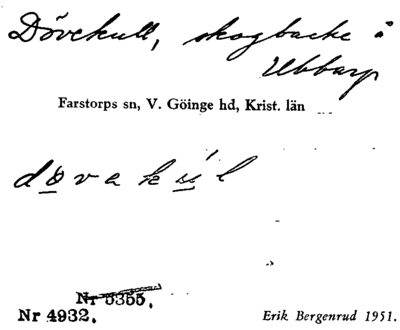 Dövekull, skogbacke å
Ubbarp
Farstorps sn, V. Göinge hd, Krist. län
dövakúl
Nr 5355.
Nr 4932.
Erik Bergenrud 1951.